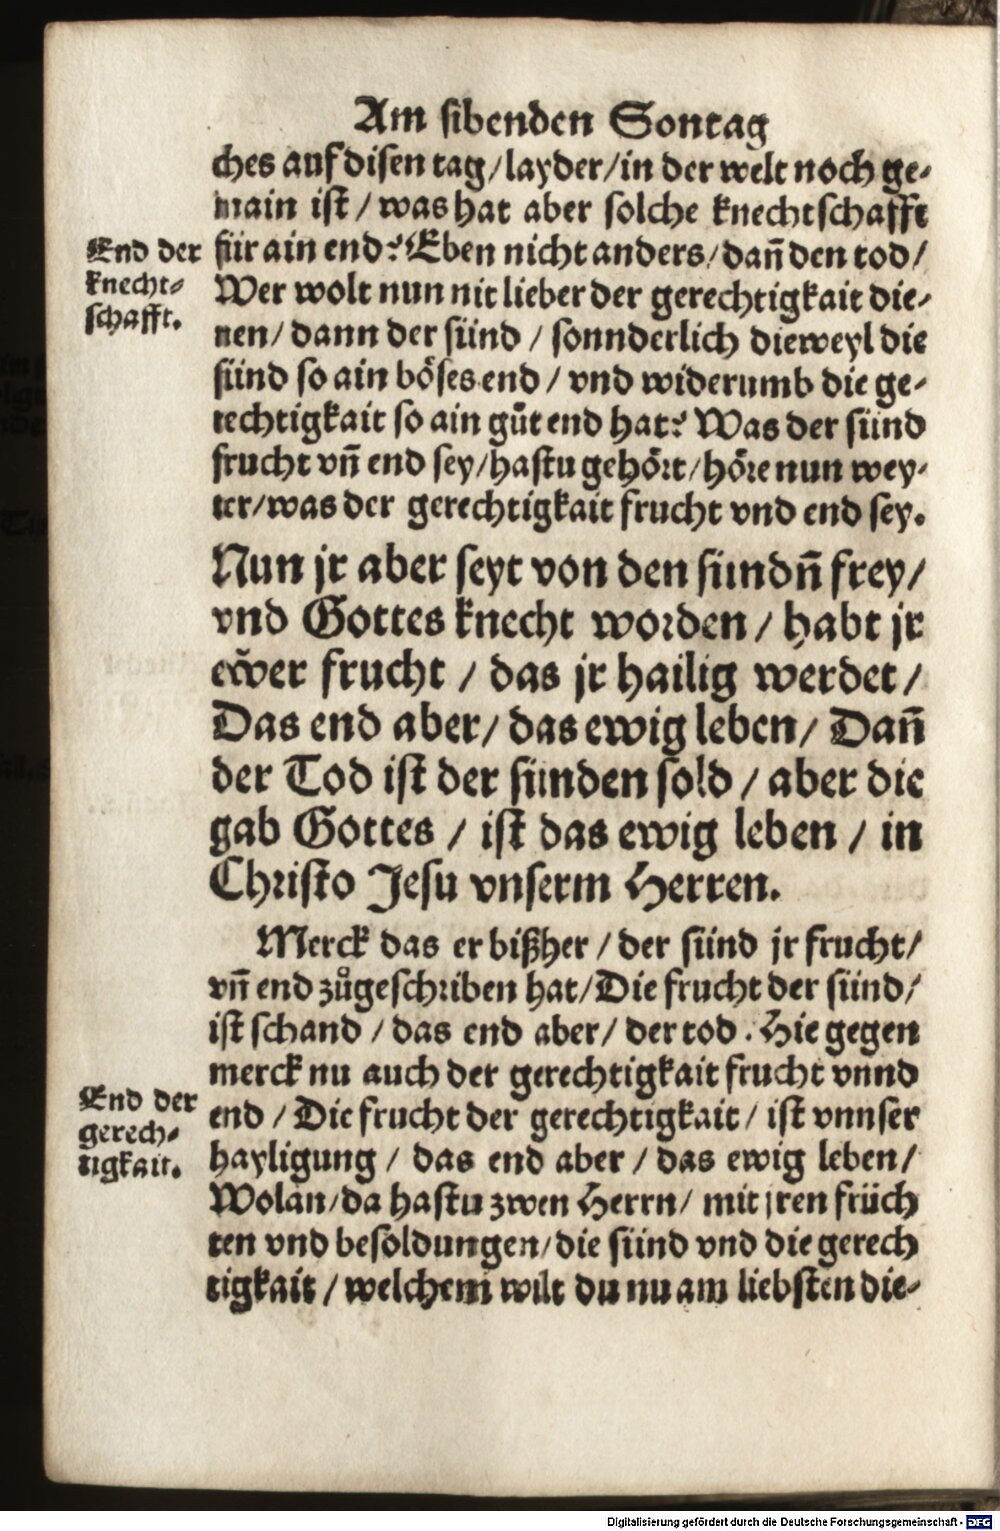 Am sibenden Sontag
ches auf disen tag / layder / in der welt noch ge-
main ist / was hat aber solche knechtschafft
End der
knecht-
schafft.
für ain end? Eben nicht anders / dañ den tod /
Wer wolt nun nit lieber der gerechtigkait die-
nen / dann der sünd / sonnderlich dieweyl die
sünd so ain böses end / vnd widerumb die ge-
rechtigkait so ain gůt end hat? Was der sünd
frucht vñ end sey / hastu gehört / höre nun wey-
ter / was der gerechtigkait frucht vnd end sey.
Nun jr aber seyt von den sündñ frey /
vnd Gottes knecht worden / habt jr
ewer frucht / das jr hailig werdet /
Das end aber / das ewig leben / Dañ
der Tod ist der sünden sold / aber die
gab Gottes / ist das ewig leben / in
Christo Jesu vnserm Herren.
Merck das er bißher / der sünd jr frucht /
vñ end zůgeschriben hat / Die frucht der sünd /
ist schand / das end aber / der tod. Hie gegen
merck nu auch der gerechtigkait frucht vnnd
End der
gerech-
tigkait.
end / Die frucht der gerechtigkait / ist vnnser
hayligung / das end aber / das ewig leben /
Wolan / da hastu zwen Herrn / mit jren früch
ten vnd besoldungen / die sünd vnd die gerech
tigkait / welchem wilt du nu am liebsten die-
Digitalisierung gefördert durch die Deutsche Forschungsgemeinschaft - DFG